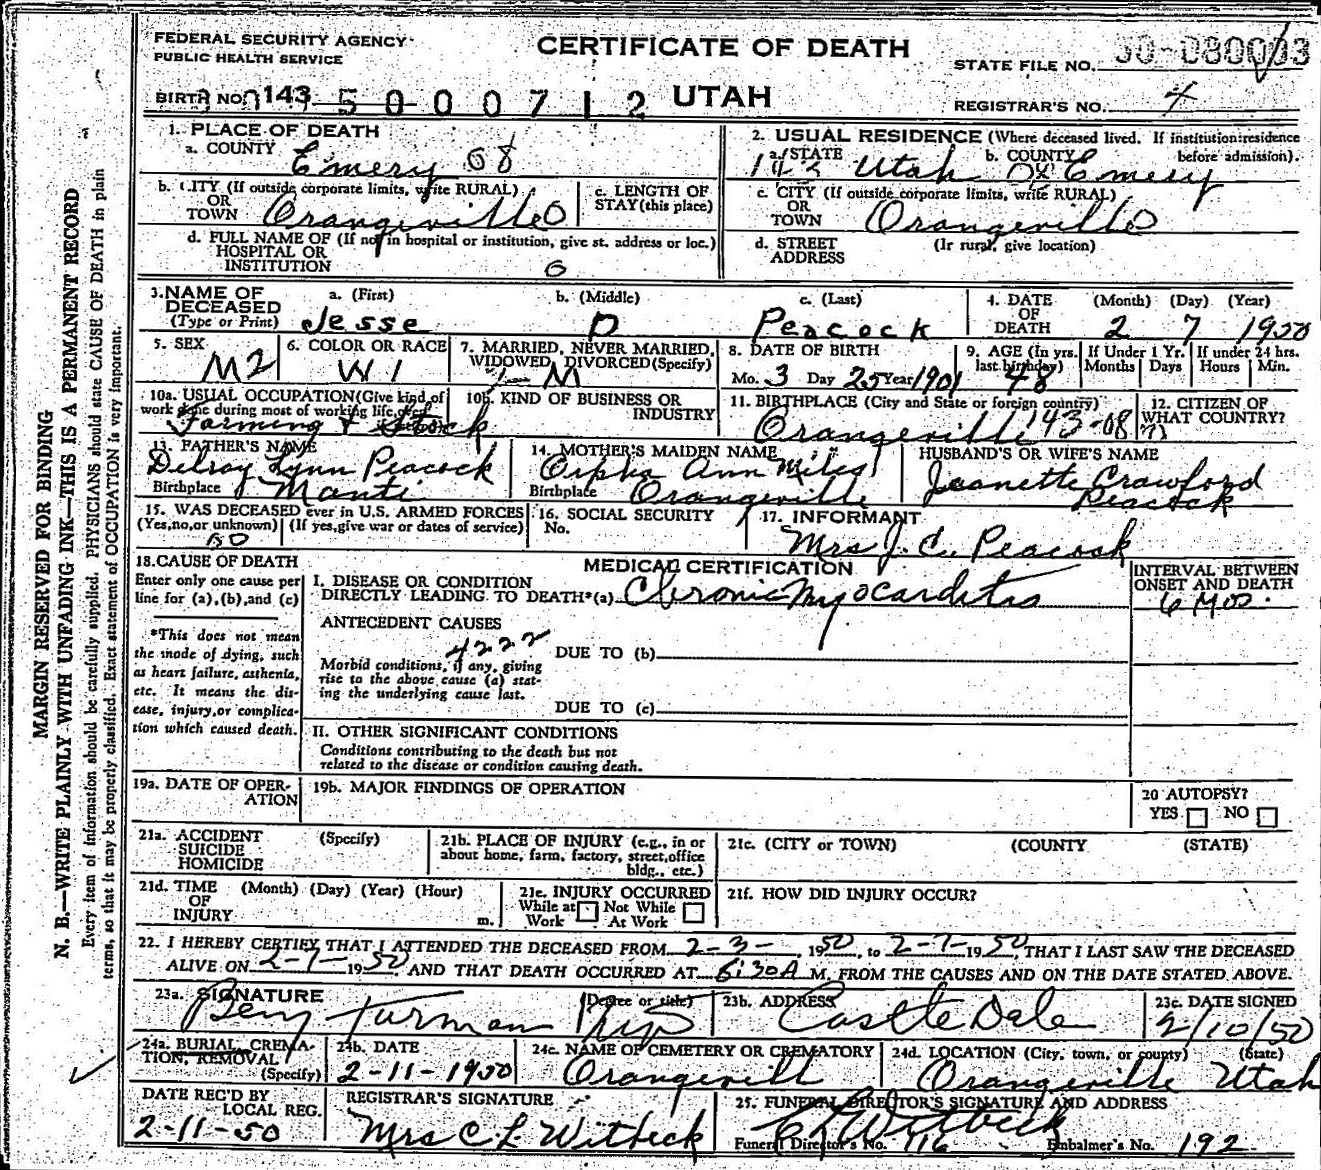 FEDERAL SECURITY AGENCY
PUBLIC HEALTH SERVICE
CERTIFICATE OF DEATH
STATE FILE NO.
BIRTH NO. 143 5000712 UTAH
REGISTRAR'S NO. 4
1. PLACE OF DEATH
a. COUNTY Emery 08
2. USUAL RESIDENCE (Where deceased lived. If institution: residence before admission).
a. STATE Utah b. COUNTY Emery
b. CITY (If outside corporate limits, write RURAL)
OR TOWN Orangeville 0
c. LENGTH OF STAY (this place)
c. CITY (If outside corporate limits, write RURAL)
OR TOWN Orangeville 0
d. FULL NAME OF (If not in hospital or institution, give st. address or loc.)
HOSPITAL OR INSTITUTION 0
d. STREET ADDRESS (If rural, give location)
3. NAME OF DECEASED (Type or Print)
a. (First) Jesse
b. (Middle) D
c. (Last) Peacock
4. DATE OF DEATH (Month) (Day) (Year)
2 7 1950
5. SEX M2
6. COLOR OR RACE W 1
7. MARRIED, NEVER MARRIED, WIDOWED, DIVORCED (Specify)
1-M
8. DATE OF BIRTH
Mo. 3 Day 25 Year 1901
9. AGE (In yrs. last birthday) 48
If Under 1 Yr. Months Days
If under 24 hrs. Hours Min.
10a. USUAL OCCUPATION (Give kind of work done during most of working life, even if retired)
Farming & Stock
10b. KIND OF BUSINESS OR INDUSTRY
11. BIRTHPLACE (City and State or foreign country)
Orangeville 143-08
12. CITIZEN OF WHAT COUNTRY?
13. FATHER'S NAME
Delroy Lynn Peacock
Birthplace Manti
14. MOTHER'S MAIDEN NAME
Orpha Ann Miles
Birthplace Orangeville
HUSBAND'S OR WIFE'S NAME
Jeanette Crawford
Peacock
15. WAS DECEASED ever in U.S. ARMED FORCES
(Yes, no, or unknown) (If yes, give war or dates of service)
no
16. SOCIAL SECURITY No.
17. INFORMANT
Mrs J. C. Peacock
18. CAUSE OF DEATH
Enter only one cause per line for (a), (b), and (c)
MEDICAL CERTIFICATION
INTERVAL BETWEEN ONSET AND DEATH
I. DISEASE OR CONDITION
DIRECTLY LEADING TO DEATH*(a) Chronic Myocarditis
6 Mos.
ANTECEDENT CAUSES
4222
Morbid conditions, if any, giving rise to the above cause (a) stating the underlying cause last.
DUE TO (b)
DUE TO (c)
*This does not mean the mode of dying, such as heart failure, asthenia, etc. It means the disease, injury, or complication which caused death.
II. OTHER SIGNIFICANT CONDITIONS
Conditions contributing to the death but not related to the disease or condition causing death.
19a. DATE OF OPERATION
19b. MAJOR FINDINGS OF OPERATION
20 AUTOPSY?
YES NO
21a. ACCIDENT SUICIDE HOMICIDE (Specify)
21b. PLACE OF INJURY (e.g., in or about home, farm, factory, street, office bldg., etc.)
21c. (CITY or TOWN) (COUNTY (STATE)
21d. TIME OF INJURY (Month) (Day) (Year) (Hour) m.
21e. INJURY OCCURRED
While at Work Not While At Work
21f. HOW DID INJURY OCCUR?
22. I HEREBY CERTIFY THAT I ATTENDED THE DECEASED FROM 2-3-, 1950, to 2-7-1950, THAT I LAST SAW THE DECEASED
ALIVE ON 2-7-1950, AND THAT DEATH OCCURRED AT 6:30A M, FROM THE CAUSES AND ON THE DATE STATED ABOVE.
23a. SIGNATURE (Degree or title)
Turman
23b. ADDRESS
Castle Dale
23c. DATE SIGNED
2/10/50
24a. BURIAL, CREMATION, REMOVAL (Specify)
24b. DATE
2-11-1950
24c. NAME OF CEMETERY OR CREMATORY
Orangevill
24d. LOCATION (City, town, or county) (State)
Orangeville Utah
DATE REC'D BY LOCAL REG.
2-11-50
REGISTRAR'S SIGNATURE
Mrs C L Witbeck
25. FUNERAL DIRECTOR'S SIGNATURE AND ADDRESS
C L Witbeck
Funeral Director's No. 116 Embalmer's No. 192
MARGIN RESERVED FOR BINDING
N. B.—WRITE PLAINLY WITH UNFADING INK—THIS IS A PERMANENT RECORD
Every item of information should be carefully supplied. PHYSICIANS should state CAUSE OF DEATH in plain
terms, so that it may be properly classified. Exact statement of OCCUPATION is very important.